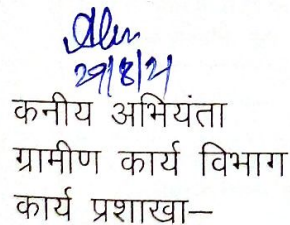 29/8/21
कनीय अभियंता
ग्रामीण कार्य विभाग
कार्य प्रशाखा—